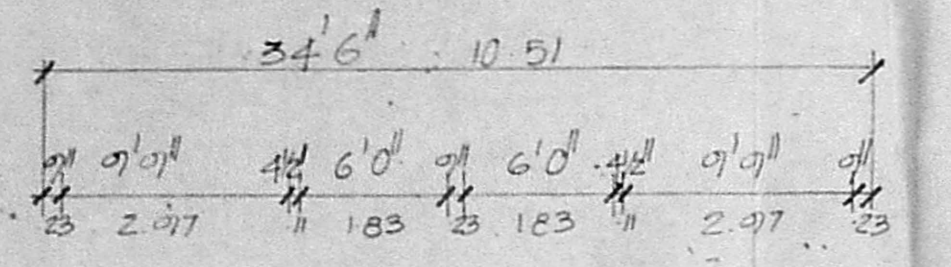 34'6" 10.51
9" 9'9" 4½" 6'0" 9" 6'0" 4½" 9'9" 9"
.23 2.97 .11 1.83 .23 1.83 .11 2.97 .23